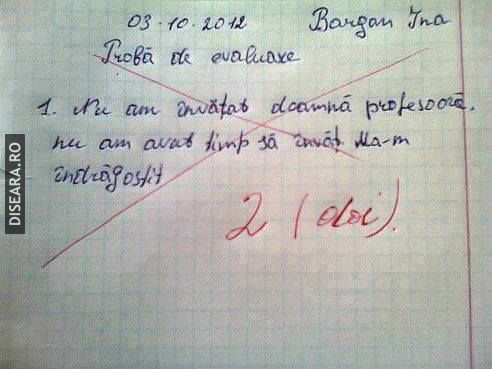 03.10.2012 Bargan Ina
Probă de evaluare
1. Nu am învățat doamnă profesoară.
nu am avut timp să învăț. Ma-m
îndrăgostit
2 (doi).
DISEARA.RO